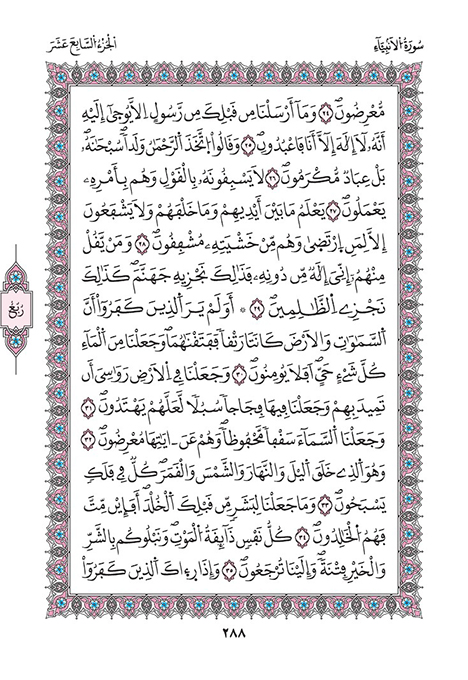 سُورَةُ الْأَنبِيَاءِ
الْجُزْءُ السَّابِعَ عَشَرَ
مُّعْرِضُونَۖ ٢٤ وَمَآ أَرْسَلْنَا مِن قَبْلِكَ مِن رَّسُولٍ اِلَّا يُوحَىٰٓ إِلَيْهِ
أَنَّهُۥ لَآ إِلَٰهَ إِلَّآ أَنَا فَاعْبُدُونِۖ ٢٥ وَقَالُوا۟ اُ۪تَّخَذَ اَ۬لرَّحْمَٰنُ وَلَداٗۖ سُبْحَٰنَهُۥۖ
بَلْ عِبَادٞ مُّكْرَمُونَۖ ٢٦ لَا يَسْبِقُونَهُۥ بِالْقَوْلِ وَهُم بِأَمْرِهِۦ
يَعْمَلُونَۖ ٢٧ يَعْلَمُ مَا بَيْنَ أَيْدِيهِمْ وَمَا خَلْفَهُمْ وَلَا يَشْفَعُونَ
إِلَّا لِمَنِ اِ۪رْتَضَىٰ وَهُم مِّنْ خَشْيَتِهِۦ مُشْفِقُونَۖ ٢٨ وَمَنْ يَّقُلْ
مِنْهُمُۥٓ إِنِّيَ إِلَٰهٞ مِّن دُونِهِۦ فَذَٰلِكَ نَجْزِيهِ جَهَنَّمَۖ كَذَٰلِكَ
نَجْزِے اِ۬لظَّٰلِمِينَۖ ٢٩ ۞ أَوَلَمْ يَرَ اَ۬لذِينَ كَفَرُوٓا۟ أَنَّ
اَ۬لسَّمَٰوَٰتِ وَالْأَرْضَ كَانَتَا رَتْقاٗ فَفَتَقْنَٰهُمَاۖ وَجَعَلْنَا مِنَ اَ۬لْمَآءِ
كُلَّ شَےْءٍ حَيٍّۖ أَفَلَا يُومِنُونَۖ ٣٠ وَجَعَلْنَا فِے اِ۬لْأَرْضِ رَوَٰسِيَ أَن
تَمِيدَ بِهِمْ وَجَعَلْنَا فِيهَا فِجَاجاٗ سُبُلاٗ لَّعَلَّهُمْ يَهْتَدُونَۖ ٣١
وَجَعَلْنَا اَ۬لسَّمَآءَ سَقْفاٗ مَّحْفُوظاٗۖ وَهُمْ عَنَ اٰيَٰتِهَا مُعْرِضُونَۖ ٣٢
وَهُوَ اَ۬لذِے خَلَقَ اَ۬لَّيْلَ وَالنَّهَارَ وَالشَّمْسَ وَالْقَمَرَۖ كُلّٞ فِے فَلَكٖ
يَسْبَحُونَۖ ٣٣ وَمَا جَعَلْنَا لِبَشَرٖ مِّن قَبْلِكَ اَ۬لْخُلْدَۖ أَفَإِيْن مِّتَّ
فَهُمُ اُ۬لْخَٰلِدُونَۖ ٣٤ كُلُّ نَفْسٖ ذَآئِقَةُ اُ۬لْمَوْتِۖ وَنَبْلُوكُم بِالشَّرِّ
وَالْخَيْرِ فِتْنَةٗۖ وَإِلَيْنَا تُرْجَعُونَۖ ٣٥ وَإِذَا رَءَاكَ اَ۬لذِينَ كَفَرُوٓا۟
رُبُعٌ
٢٨٨